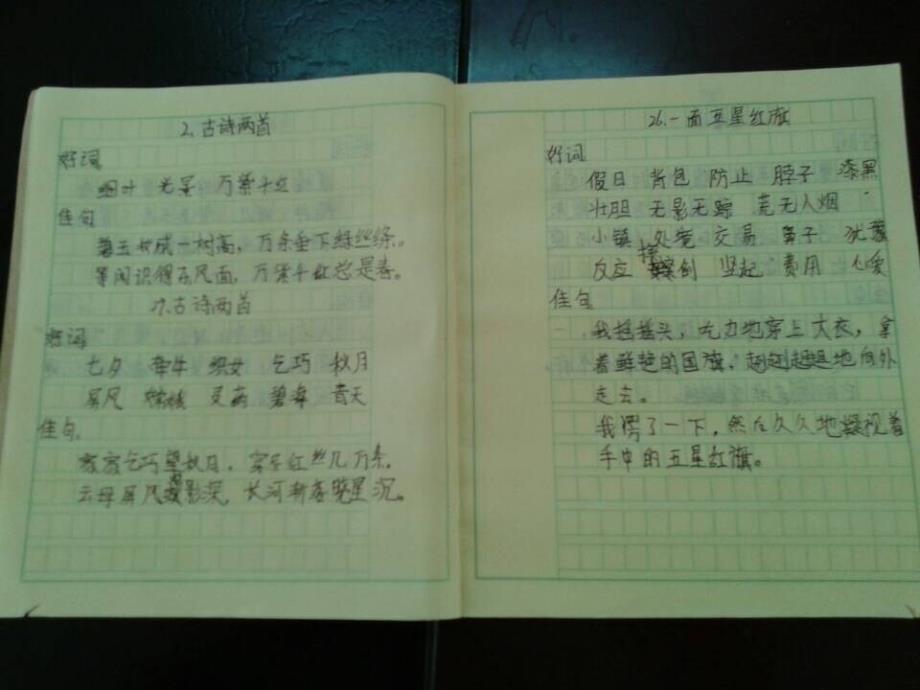 2、古诗两首
好词
细叶 光景 万紫千红
佳句
碧玉妆成一树高，万条垂下绿丝绦。
等闲识得东风面，万紫千红总是春。
9.古诗两首
好词
七夕 牵牛 织女 乞巧 秋月
屏风 嫦娥 灵药 碧海 青天
佳句
家家乞巧望秋月，穿尽红丝几万条。
云母屏风烛影深，长河渐落晓星沉。
26.一面五星红旗
好词
假日 背包 防止 脖子 漆黑
壮胆 无影无踪 荒无人烟
小镇 处境 交易 鼻子 犹豫
反应 擦剑 竖起 费用 心爱
佳句
我摇摇头，吃力地穿上大衣，拿
着鲜艳的国旗，趔趔趄趄地向外
走去。
我愣了一下，然后久久地凝视着
手中的五星红旗。